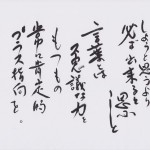 しようと思うより
必ず出来ると思う
こと
言葉は
不思議な力を
もつもの
常に肯定的
プラス指向を。